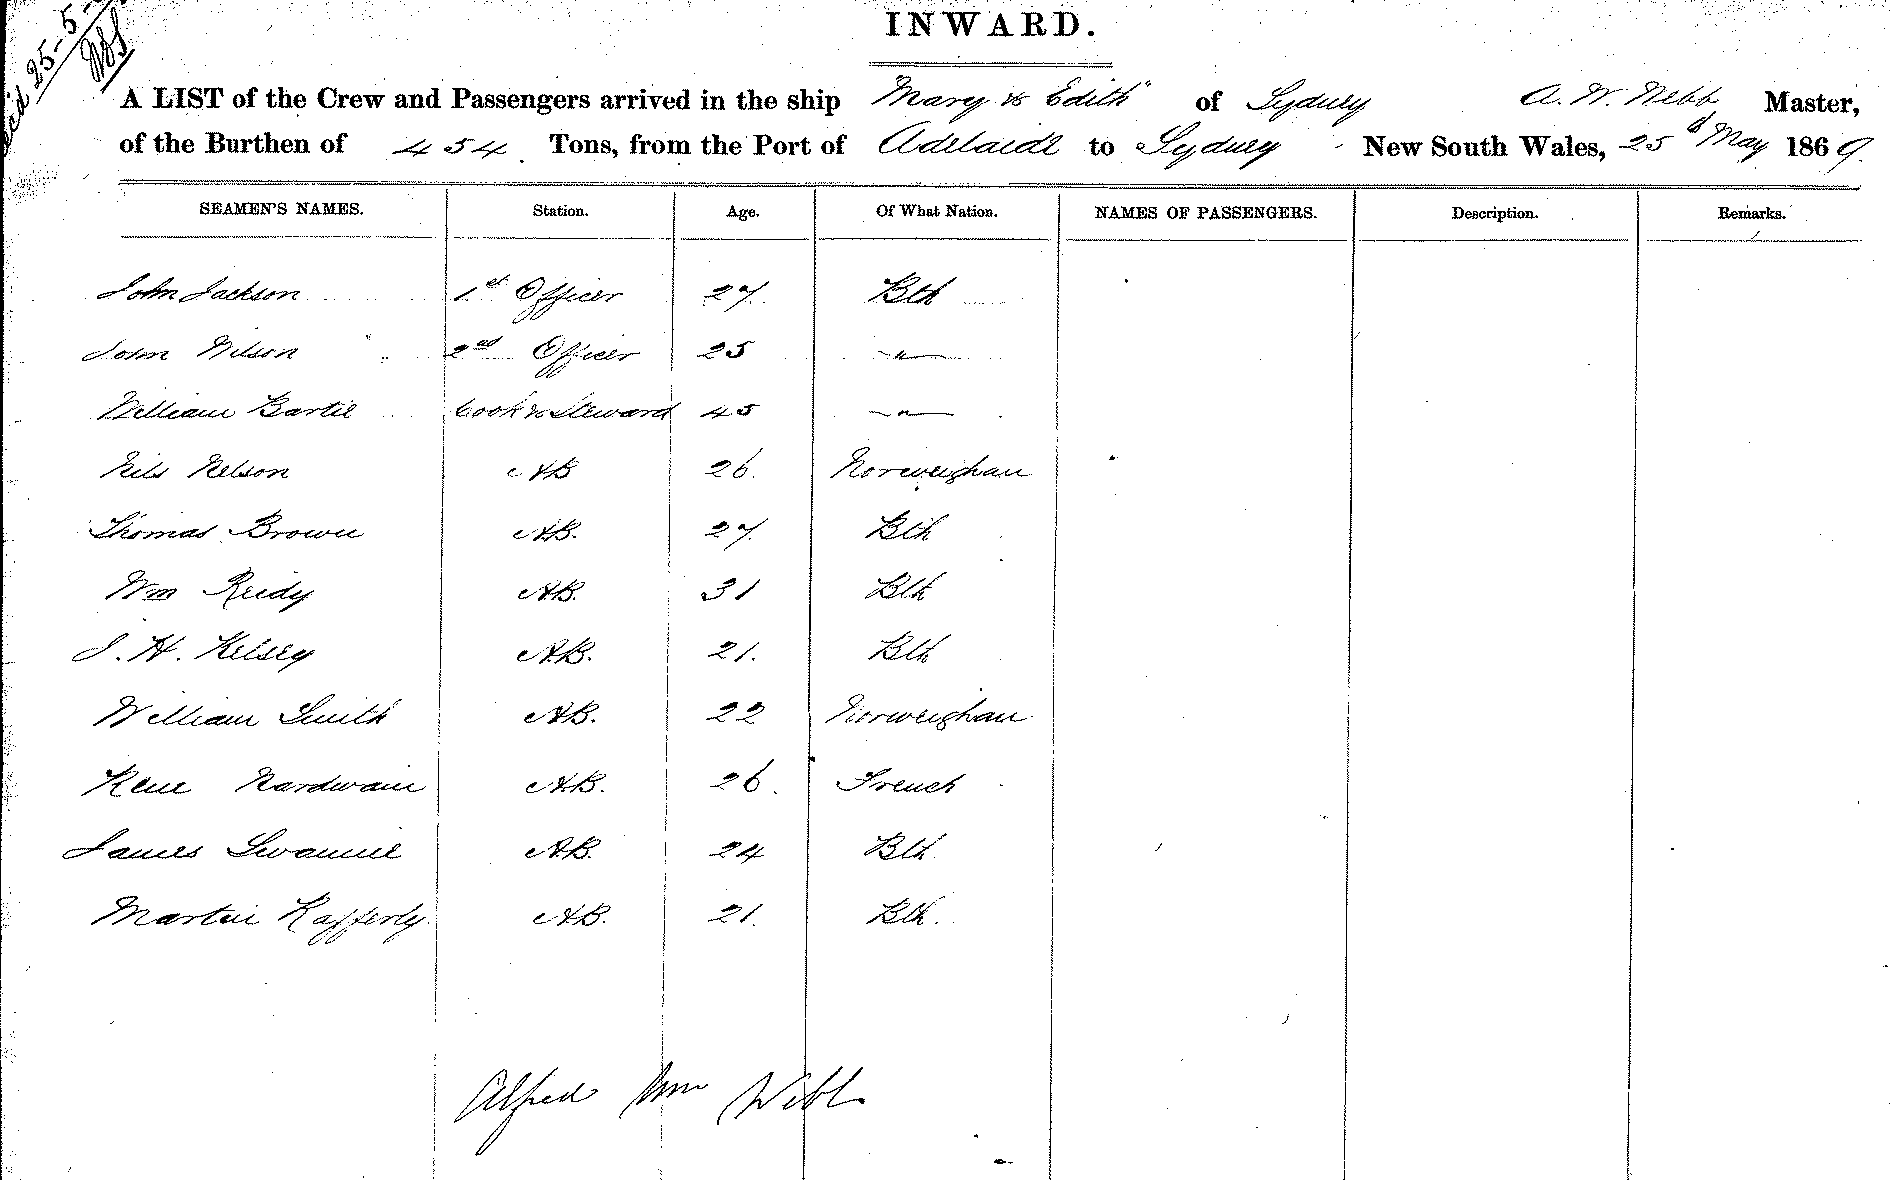 25-5-
INWARD.
A LIST of the Crew and Passengers arrived in the ship "Mary & Edith" of Sydney A. W. Webb Master,
of the Burthen of 434 Tons, from the Port of Adelaide to Sydney New South Wales, 25th May 1869.
SEAMEN'S NAMES. Station. Age. Of What Nation. NAMES OF PASSENGERS. Description. Remarks.
John Jackson 1st Officer 27. Bth
John Wilson " 2nd Officer 25 —"—
William Bartie Cook & Steward 45 —"—
Nils Nelson AB 26. Norweighan
Thomas Brown AB. 27. Bth
Wm Reidy AB. 31 Bth
J. H. Kelsey A.B. 21. Bth
William Smith AB. 22 Norweighan
Rene Nardwain A.B. 26. French
James Swannie AB. 24 Bth
Martin Rafferty AB. 21. Bth.
Alfred Wm Webb